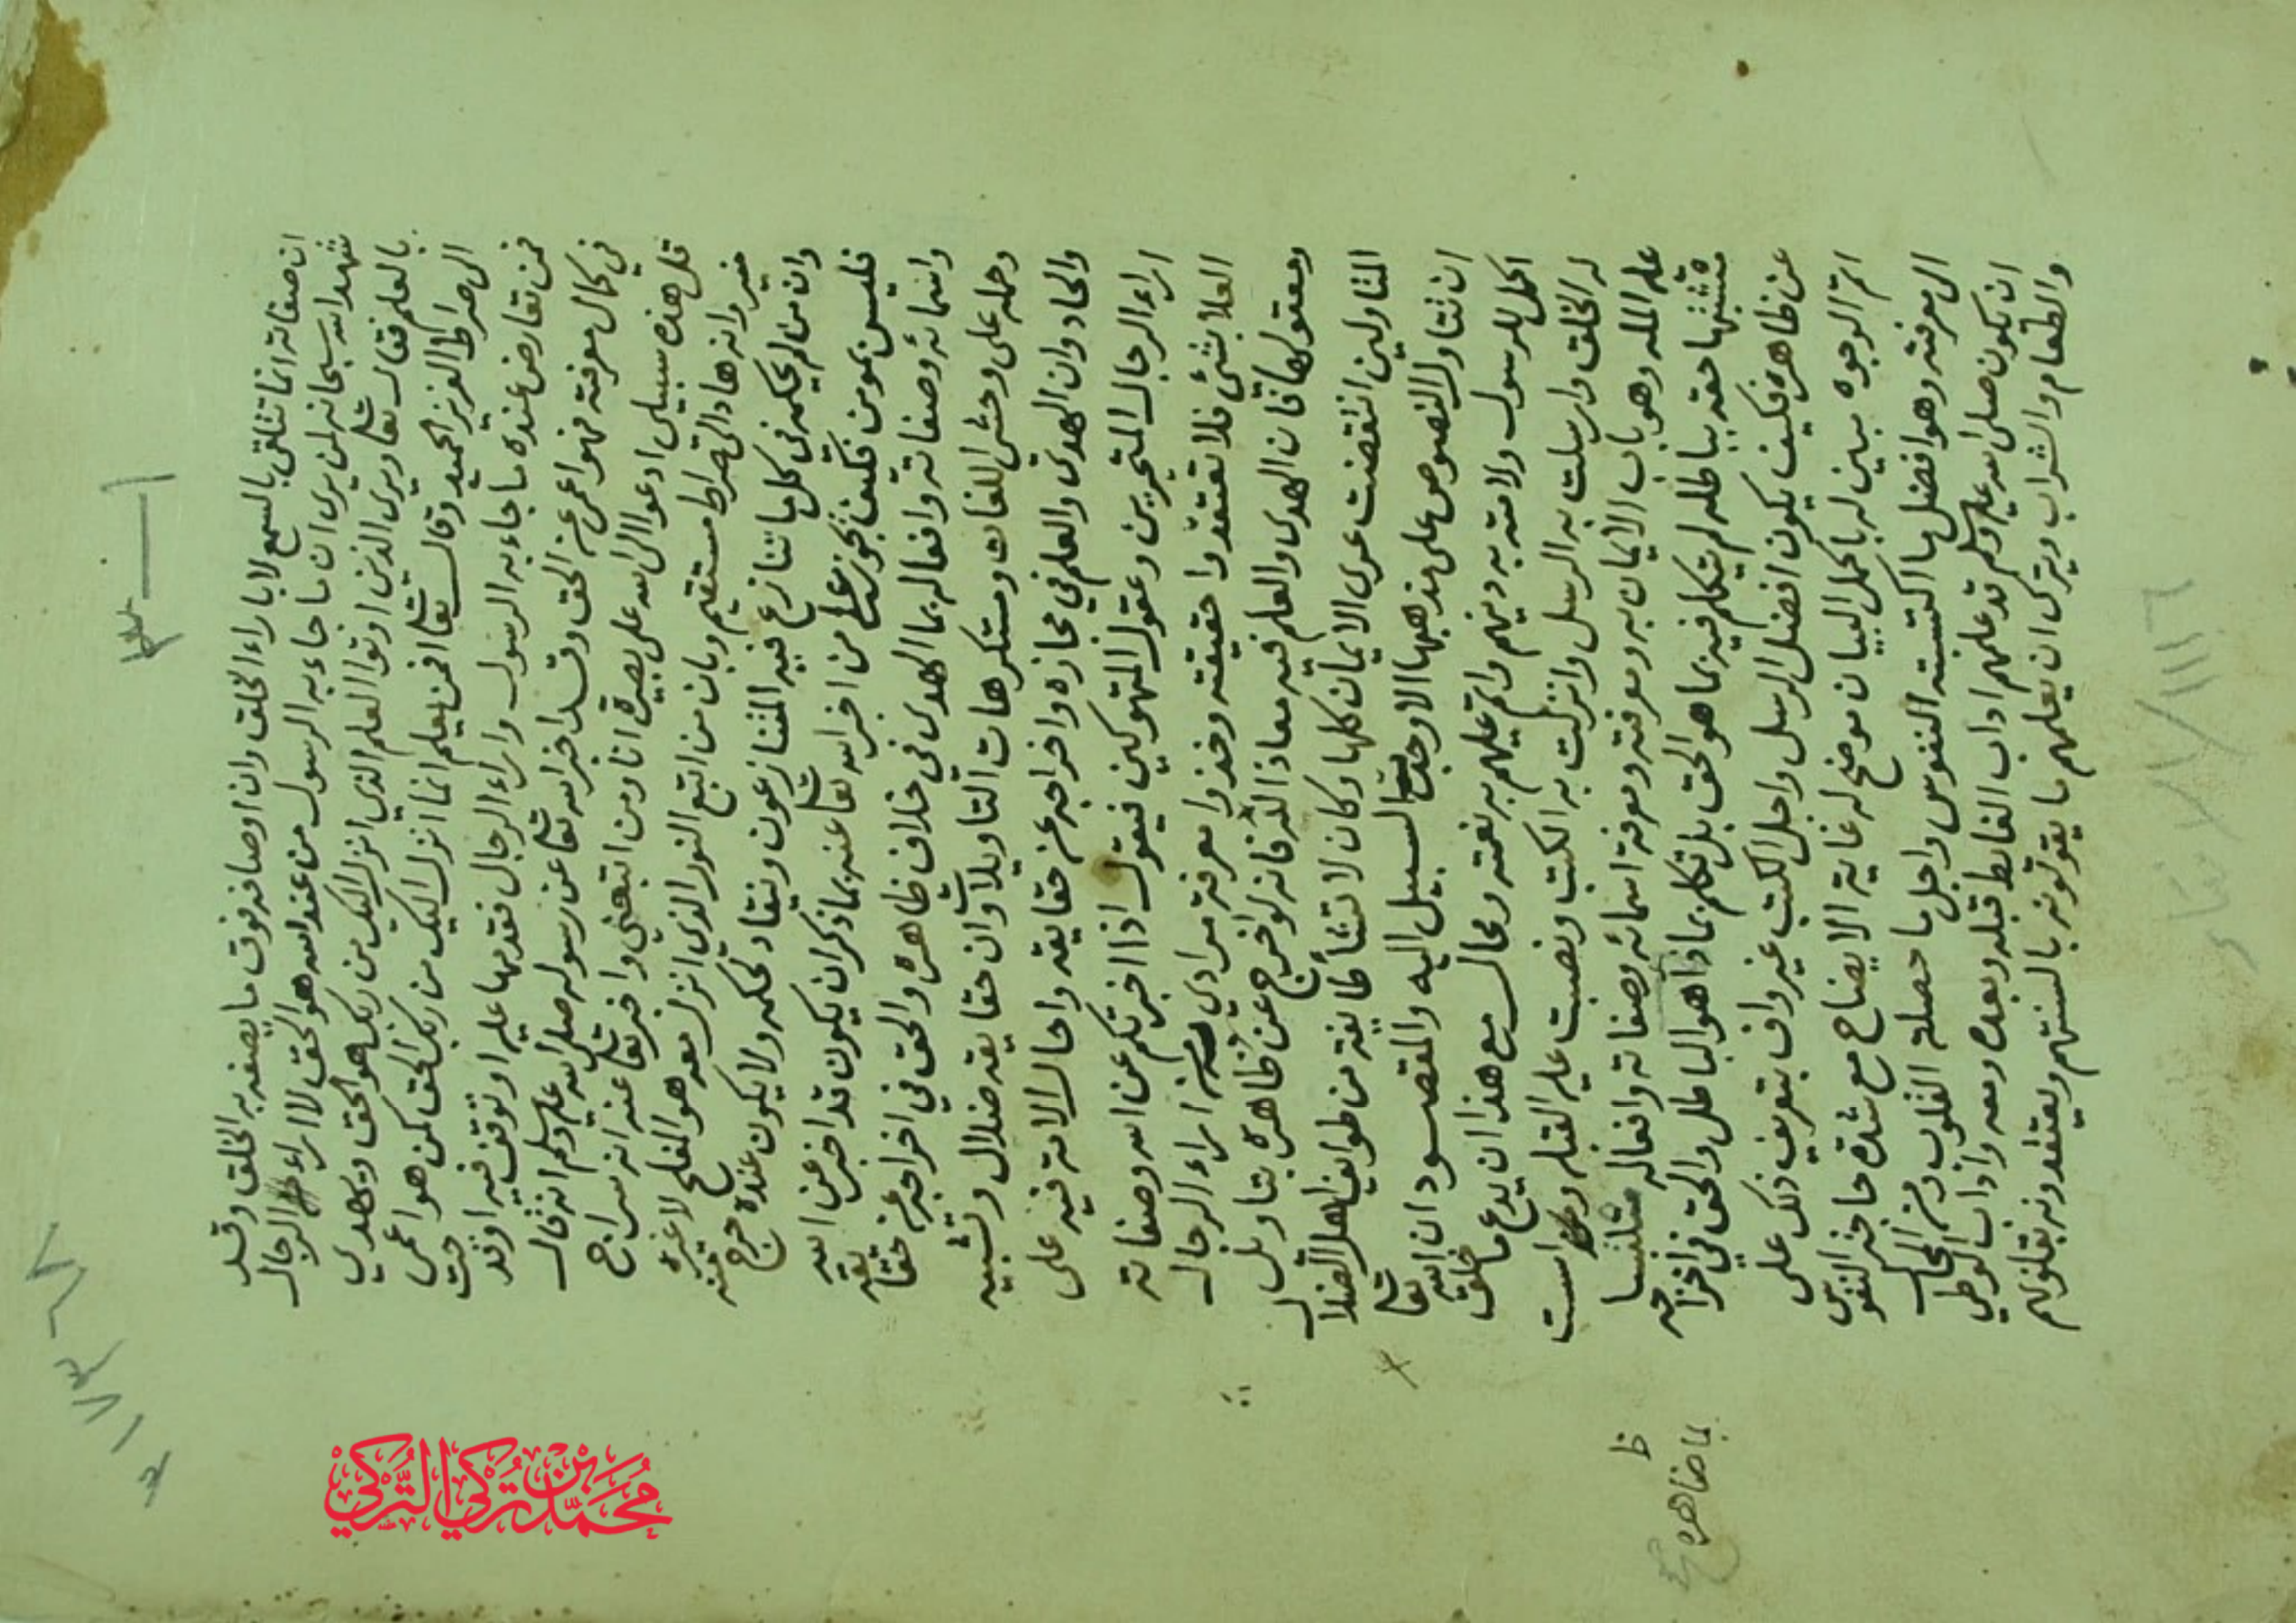 ان صفاته انما تتلقى بالسمع لا باراء الخلق وان اوصافه فوق ما يصفه به الخلق وقد
شهد الله سبحانه لمن يرى ان ما جاء به الرسول من عند الله هو الحق لا اراء الرجال
بالعلم فقال تعالى ويرى الذين اوتوا العلم الذي انزل اليك من ربك هو الحق ويهدي
الى صراط العزيز الحميد وقال تعالى افمن يعلم انما انزل اليك من ربك الحق كمن هو اعمى
فمن تعارض عنده ما جاء به الرسول واراء الرجال فقدمها عليه او توقف فيه او قدحت
في كمال معرفته فهو اعمى عن الحق وقد اخبر الله تعالى عن رسوله صلى الله عليه وسلم انه قال
قل هذه سبيلي ادعوا الى الله على بصيرة انا ومن اتبعني واخبر تعالى عنه انه سراج
منير وانه هاد الى صراط مستقيم وبان من اتبع النور الذي انزل معه هو المفلح لا غيره
وان من لم يحكمه في كل ما تنازع فيه المتنازعون وينقاد لحكمه ولا يكون عنده حرج منه
فليس بمومن فكيف يجوز على من اخبر الله تعالى عنه بما ذكر ان يكون قد اخبر عن الله
واسمائه وصفاته وافعاله بما الهدى في خلاف ظاهره والحق في اخراجه عن حقايقه
وحمله على وحشي اللغات ومستكرهات التاويلات وان حقايقه ضلال وتشبيه
والحاد وان الهدى والعلم في مجازه واخراجه عن حقايقه واحال الامة فيه على
اراء الرجال المتحيرين وعقول المتهوكين فيقول اذا اخبرتكم عن الله وصفاته
العلا بشئ فلا تعتقدوا حقيقته وخذوا معرفة مرادي منه من اراء الرجال
ومعقولها فان الهدى والعلم فيه معاذ الله فانه لو اخرج عن ظاهره بتاويل
المتاولين انتقضت عرى الايمان كلها وكان لا تشأ طايفة من طوايف اهل الضلال
ان تتاول النصوص على مذهبها الا وجدت السبيل اليه والمقصود ان الله تعالى
اكمل للرسول ولامته به دينهم واتم عليهم به نعمته ومحال مع هذا ان يدع ما خلق
له الخلق وارسلت به الرسل وانزلت به الكتب ونصبت عليه القبلة واسست
عليه الملة وهو باب الايمان به ومعرفته ومعرفة اسمائه وصفاته وافعاله ملتبسا
مشتبها حقه بباطله لم يتكلم فيه بما هو الحق بل تكلم بما هو الباطل والحق في اخراجه
عن ظاهره فكيف يكون افضل الرسل واجل الكتب غير واف بتعريف ذلك على
اتم الوجوه مبين له باكمل البيان موضح له غاية الايضاح مع شدة حاجة النفوس
الى معرفته وهو افضل ما اكتسبته النفوس واجل ما حصلته القلوب ومن المحال
ان يكون صلى الله عليه وسلم قد علمهم اداب الغايط قبله وبعده ومعه واداب الوطي
والطعام والشراب ويترك ان يعلمهم ما يقولونه بالسنتهم ويعتقدونه بقلوبهم
ظ
بما ظاهره
محمد بن تركي التركي